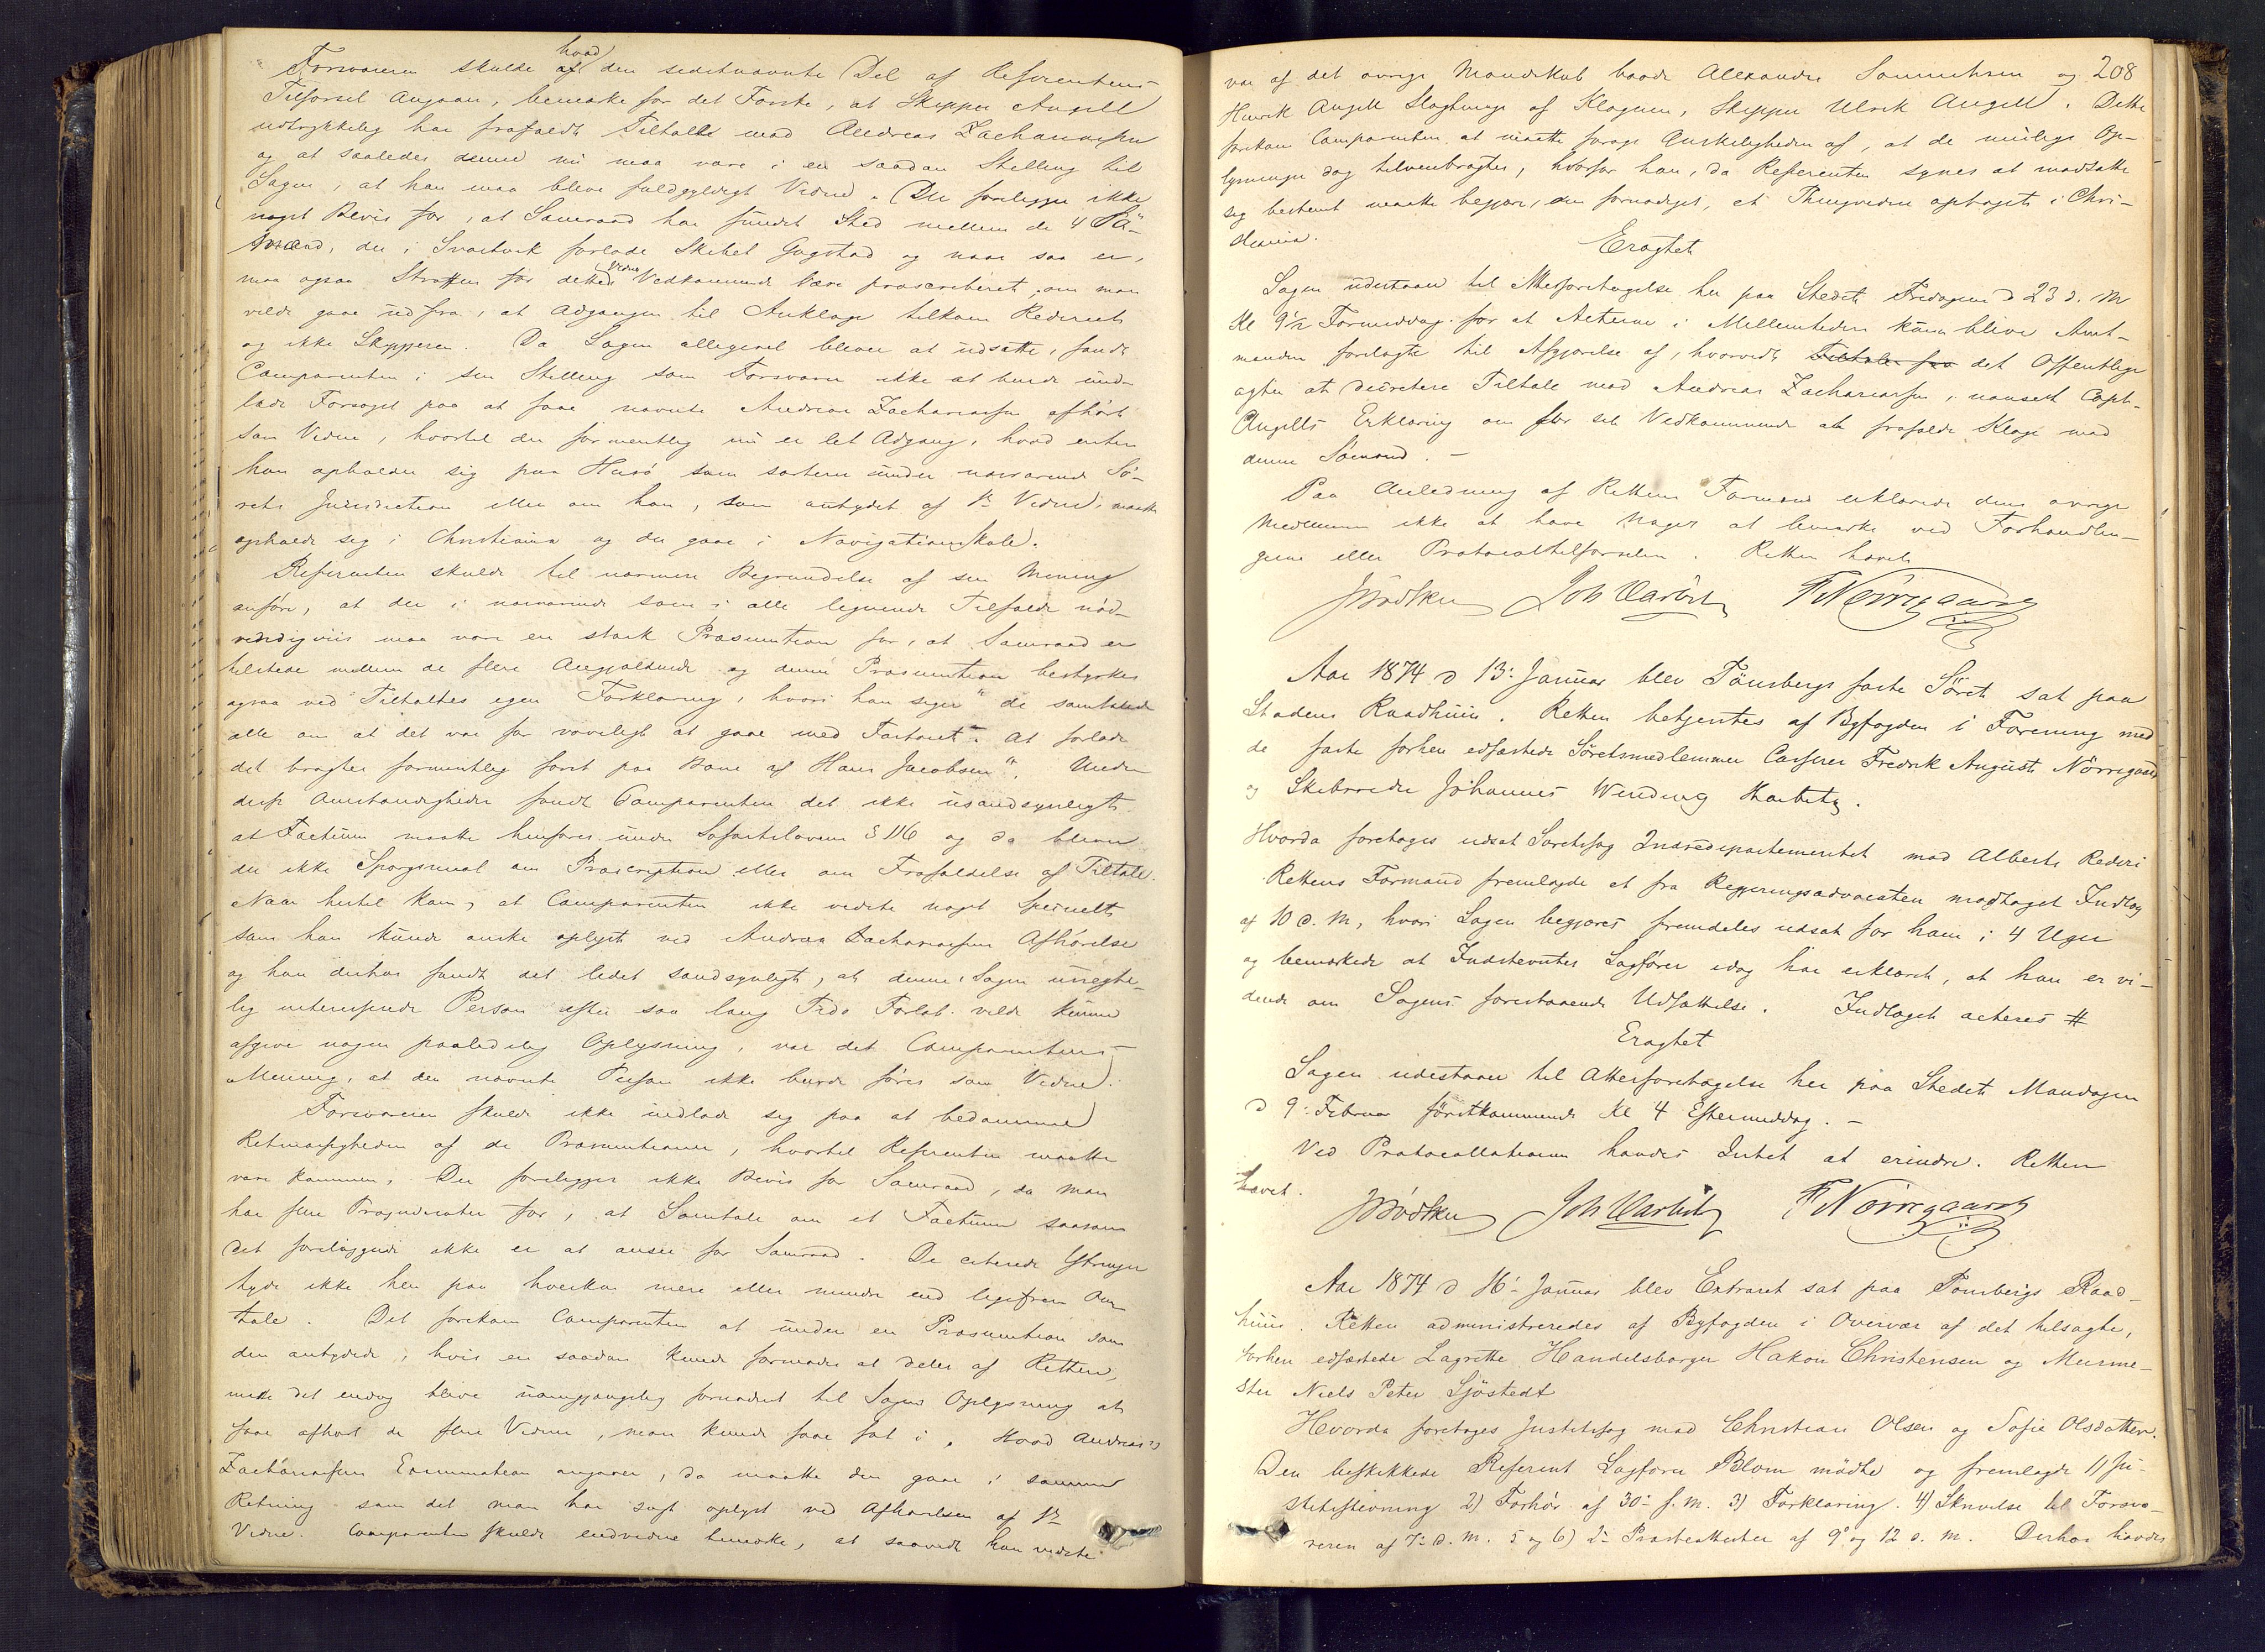 hvad
Forsvareren skulde af den sidstnævnte Del af Referentens
Tilførsel angaar, bemærke for det Første, at Skipper Angell
udtrykkelig har frafaldt Tiltale mod Andreas Zachariassen
og at saaledes denne nu maa være i en saadan Stilling til
Sagen, at han maa blive fuldgyldigt Vidne. Der foreligger ikke
noget Bevis for, at Samraad har fundet Sted mellem de 4 Sö-
mænd, der i Svartvik forlode Skibet Gogstad og naar saa er,
maa ogsaa Straffen for dette Vidnes Vedkommende være præscriberet, om man
vilde gaae ud fra, at Adgangen til Anklage tilkom Rederiet
og ikke Skipperen. Da Sagen alligevel bliver at udsætte, fandt
Comparenten i sin Stilling som Forsvarer ikke at burde und-
lade Forsøget paa at faae nævnte Andreas Zachariassen afhørt
som Vidne, hvortil der formentlig nu er let Adgang, hvad enten
han opholder sig paa Husö som sorterer under nærværende Sö-
rets Jurisdiction eller om han, som antydet af 1ste Vidne, maatte
opholde sig i Christiania og der gaae i Navigationsskole.
Referenten skulde til nærmere Begrundelse af sin Mening
anföre, at der i nærværende som i alle lignende Tilfælde nöd-
vendigviis maa være en stærk Præsumtion for, at Samraad er
tilstede mellem de flere Angjældende og denne Præsumtion bestyrkes
ogsaa ved Tiltaltes egen Forklaring, hvori han siger "de samtalede
alle om at det var for voveligt at gaae med Fartøiet. At forlade
det bragtes formentlig først paa Bane af Hans Jacobsen". Under
disse Omstændigheder fandt Comparenten det ikke usandsynligt
at Factum maatte henføres under Søfartslovens § 116 og da bliver
der ikke Spørgsmaal om Præscription eller om Frafaldelse af Tiltale.
Naar hertil kom, at Comparenten ikke vidste noget specielt
som han kunde ønske oplyst ved Andreas Zachariassens Afhørelse
og han derhos fandt det lidet sandsynligt, at denne i Sagen unegte-
lig interesserede Person efter saa lang Tids Forløb vilde kunne
afgive nogen paalidelig Oplysning, var det Comparentens
Mening, at den nævnte Person ikke burde føres som Vidne.
Forsvareren skulde ikke indlade sig paa at bedømme
Retmæssigheden af de Præsumtioner, hvortil Referenten maatte
være kommen. Der foreligger ikke Bevis for Samraad, da man
har flere Præjudicater for, at Samtale om et Factum saasom
det foreliggende ikke er at ansee for Samraad. De citerede Ytringer
tyde ikke hen paa hverken mere eller mindre end ligefrem Om-
tale. Det forekom Comparenten at under en Præsumtion som
den antydede, hvis en saadan kunde formodes at deles af Retten,
maa det endog blive uomgjængelig fornødent til Sagens Oplysning at
faae afhørt de flere Vidner, man kunde faae fat i. Hvad Andreas
Zachariassens Examination angaaer, da maatte den gaae i samme
Retning som det man har søgt oplyst ved Afhørelsen af 1ste
Vidne. Comparenten skulde endvidere bemærke, at saavidt han vidste
208
var af det øvrige Mandskab baade Alexander Samuelsen og
Henrik Angell Slægtninge af Klageren, Skipper Ulrik Angell. Dette
forekom Comparenten at maatte forøge Ønskeligheden af, at de mulige Op-
lysninger dog tilveiebragtes, hvorfor han, da Referenten synes at modsætte
sig bestemt maatte begjære, om fornødiget, et Thingsvidne optaget i Chri-
stiania.
Eragtet
Sagen udestaaer til Atterforetagelse her paa Stedet Fredagen d 23 d. M
Kl 9½ Formiddag for at Acterne i Mellemtiden kan blive Amt-
manden forelagte til Afgjørelse af, hvorvidt Tiltales fra det Offentlige
agter at decretere Tiltale mod Andreas Zachariassen, uanseet Capt.
Angells Erklæring om for sit Vedkommende at frafalde Klage mod
denne Sömand. —
Paa Anledning af Rettens Formand erklærede dens øvrige
Medlemmer ikke at have Noget at bemærke ved Forhandlin-
gerne eller Protocoltilførselen. Retten hævet
JBödtker Joh Harbitz F Nörregaard
Aar 1874 d 13: Januar blev Tönsbergs faste Söret sat paa
Stadens Raadhuus. Retten betjentes af Byfogden i Forening med
de faste forhen edfæstede Söretsmedlemmer Casserer Fredrik August Nörregaard
og Skibsreder Johannes Wending Harbitz.
Hvorda foretoges udsat Søretssag Indredepartementet mod Alberts Rederi
Rettens Formand fremlagde et fra Regjeringsadvocaten modtaget Indlæg
af 10 d. M, hvori Sagen begjæres fremdeles udsat for ham i 4 Uger
og bemærkede at Indstevntes Sagfører idag har erklæret, at han er vi-
dende om Sagens forestaaende Udsættelse. Indlæget acteres #
Eragtet
Sagen udestaaer til Atterforetagelse her paa Stedet Mandagen
d 9: Februar förstkommende Kl 4 Eftermiddag. —
Ved Protocollationen havdes Intet at erindre. Retten
hævet.
JBödtker Joh Harbitz F Nörregaard
Aar 1874 d 16: Januar blev Extraret sat paa Tönsbergs Raad-
huus. Retten administreredes af Byfogden i Overvær af det tilsagte,
forhen edfæstede Lagrette Handelsborger Hakon Christensen og Murme-
ster Niels Peter Sjöstedt
Hvorda foretoges Justitssag mod Christian Olsen og Sofie Olsdatter.
Den beskikkede Referent Sagfører Blom mödte og fremlagde 1) Ju-
stitsstevning 2) Forhör af 30: f. M. 3) Forklaring. 4) Skrivelse til Forsva-
reren af 7: d. M. 5 og 6) 2: Præsteattester af 9: og 12 d. M. Derhos havdes